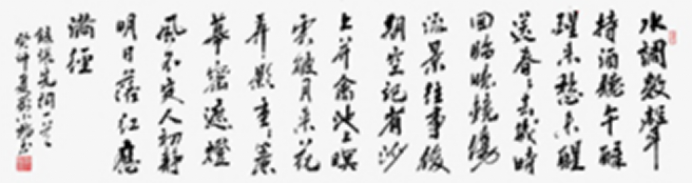 水調數聲
持酒聽午醉
醒來愁未醒
送春々去幾時
回臨晚鏡傷
流景往事後
期空記省沙
上並禽池上暝
雲破月來花
弄影重々簾
幕密遮燈
風不定人初靜
明日落紅應
滿徑
張先詞一首